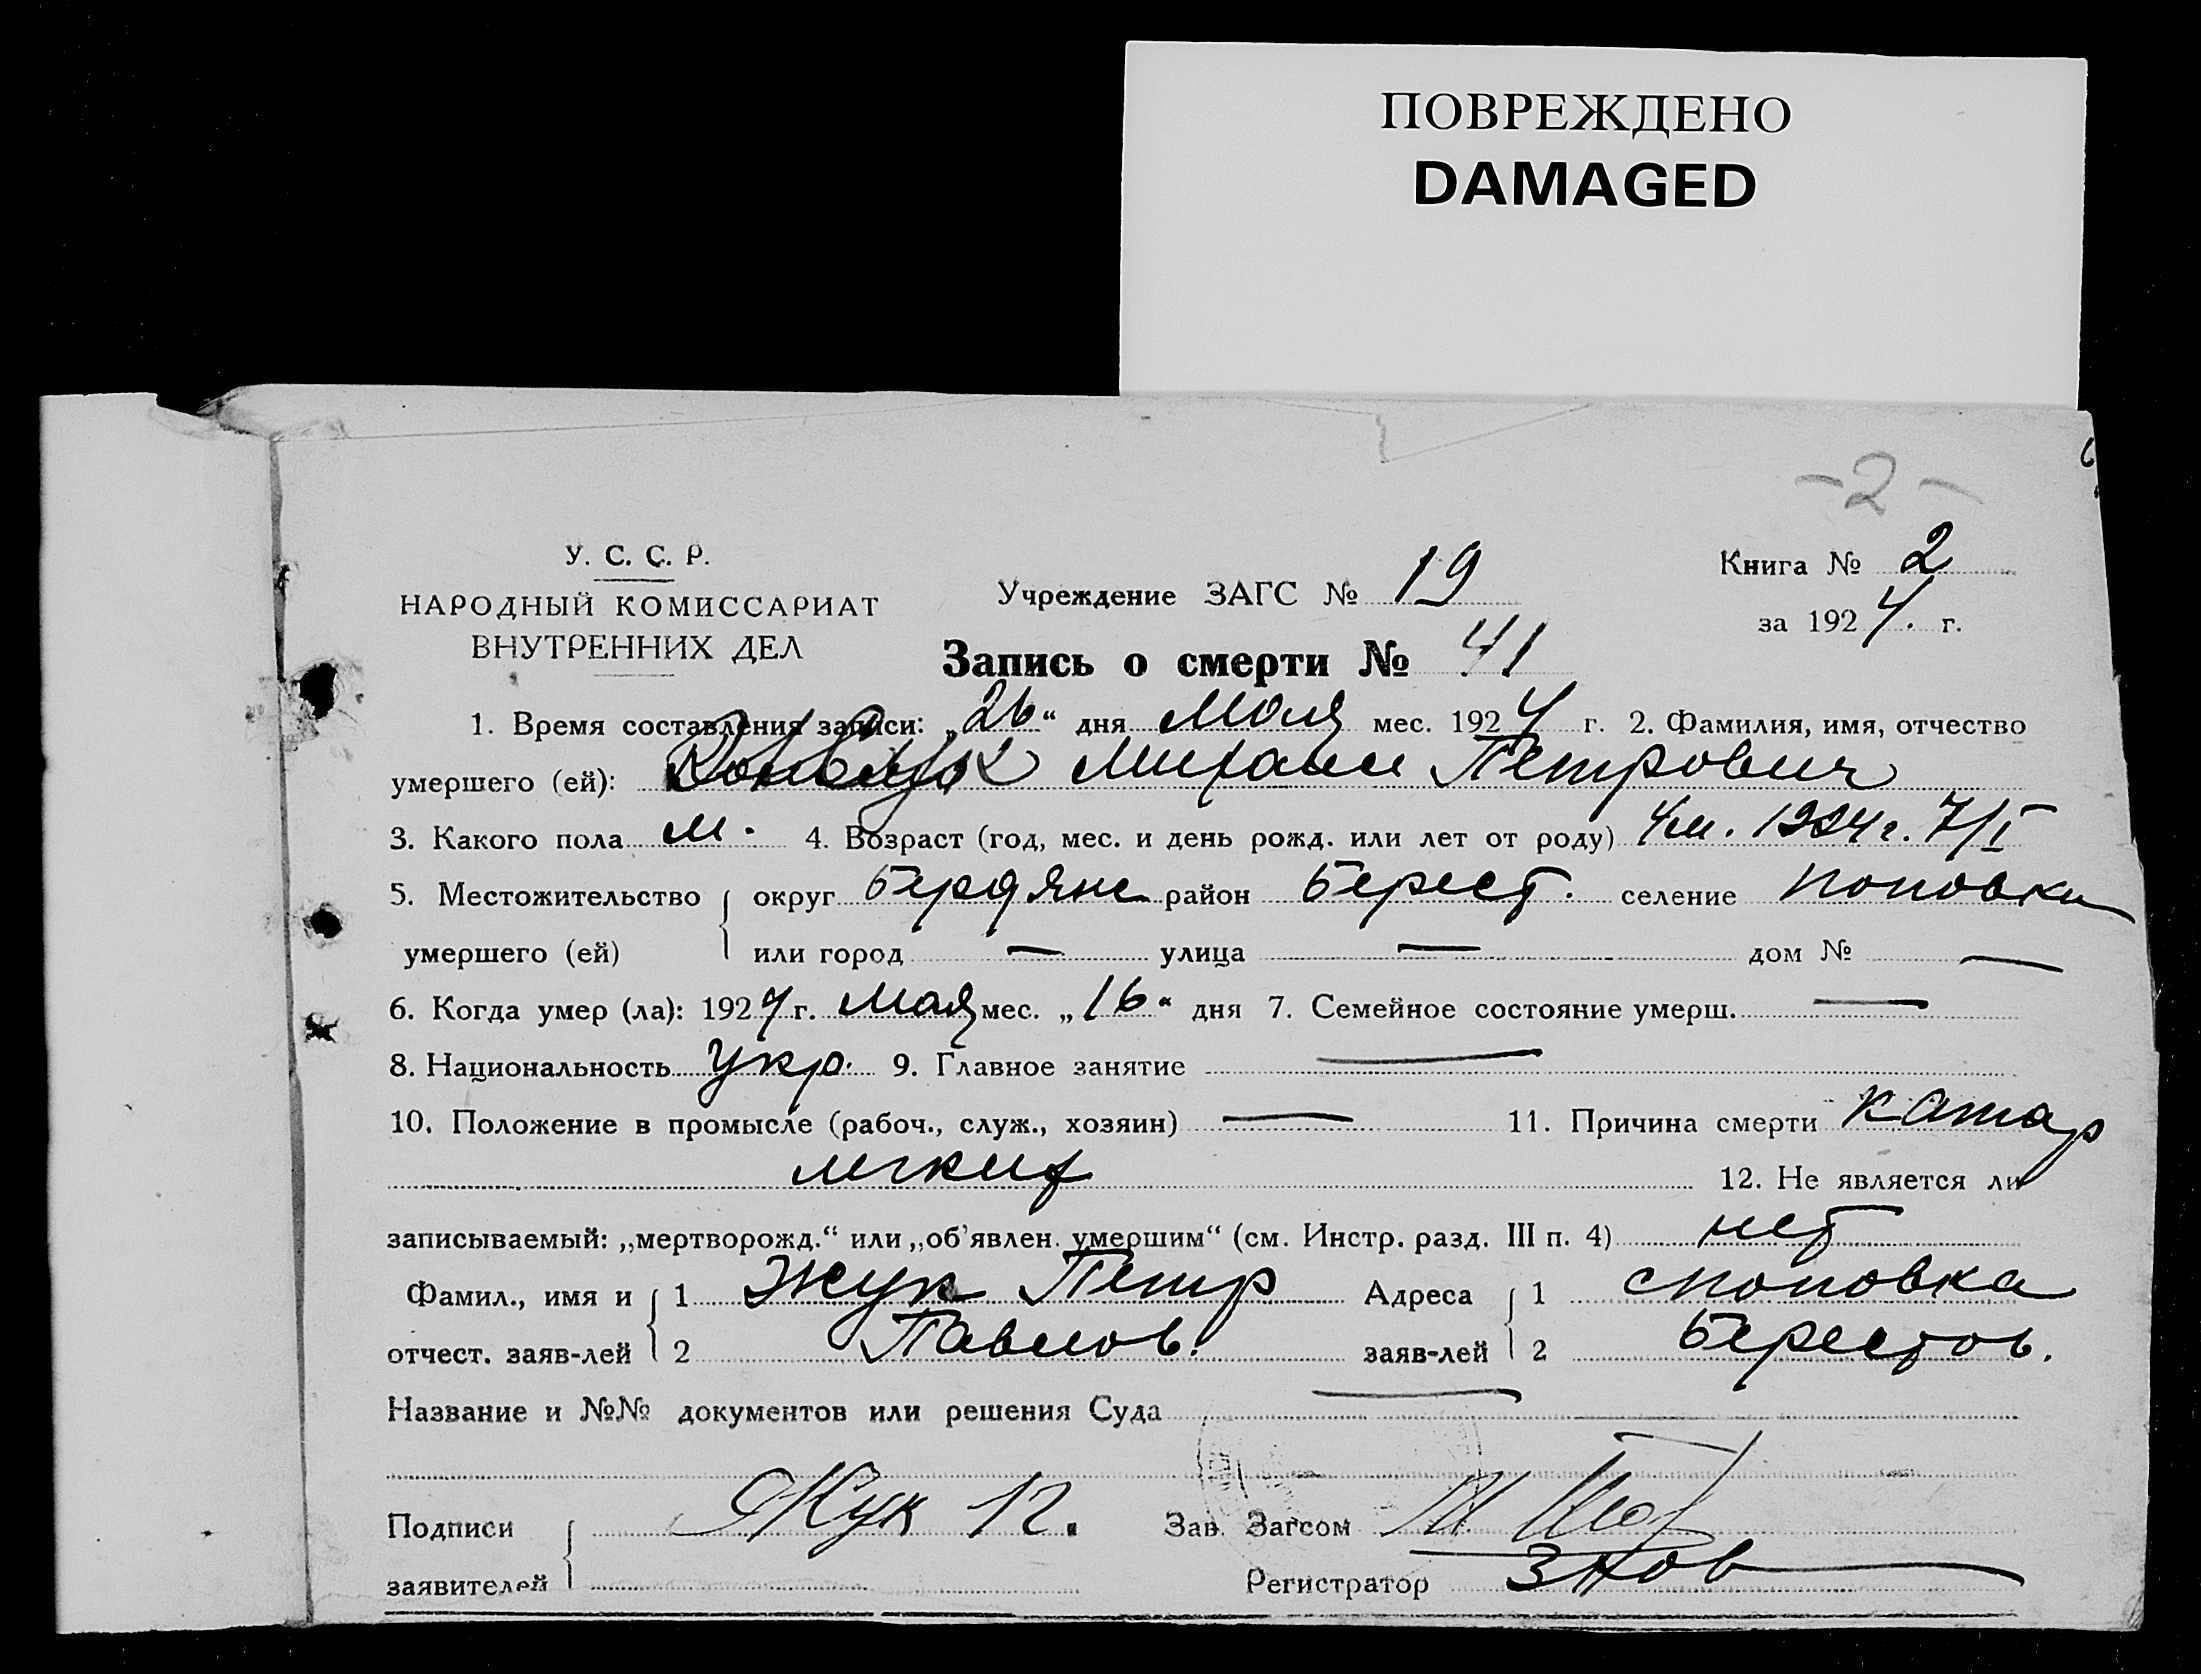 ПОВРЕЖДЕНО
DAMAGED
-2-
У. С. С. Р.
НАРОДНЫЙ КОМИССАРИАТ
ВНУТРЕННИХ ДЕЛ
Учреждение ЗАГС № 19
Книга № 2
за 1924. г.
Запись о смерти № 41
1. Время составления записи: „26“ дня Мая мес. 1924 г. 2. Фамилия, имя, отчество
умершего (ей): Михаил Петрович
3. Какого пола м. 4. Возраст (год, мес. и день рожд. или лет от роду) 4 м. 1924 г. 7/I
5. Местожительство округ Бердянс район Берест. селение Поповка
умершего (ей) или город — улица — дом № —
6. Когда умер (ла): 1924 г. Мая мес. „16“ дня 7. Семейное состояние умерш. —
8. Национальность укр. 9. Главное занятие —
10. Положение в промысле (рабоч., служ., хозяин) — 11. Причина смерти катар
легких 12. Не является ли
записываемый: „мертворожд.“ или „об'явлен. умершим“ (см. Инстр. разд. III п. 4) нет
Фамил., имя и 1 Жук Петр Адреса 1 с Поповка
отчест. заяв-лей 2 Павлов. заяв-лей 2 Берестов.
Название и №№ документов или решения Суда —
Подписи Жук П. Зав. Загсом
заявителей Регистратор